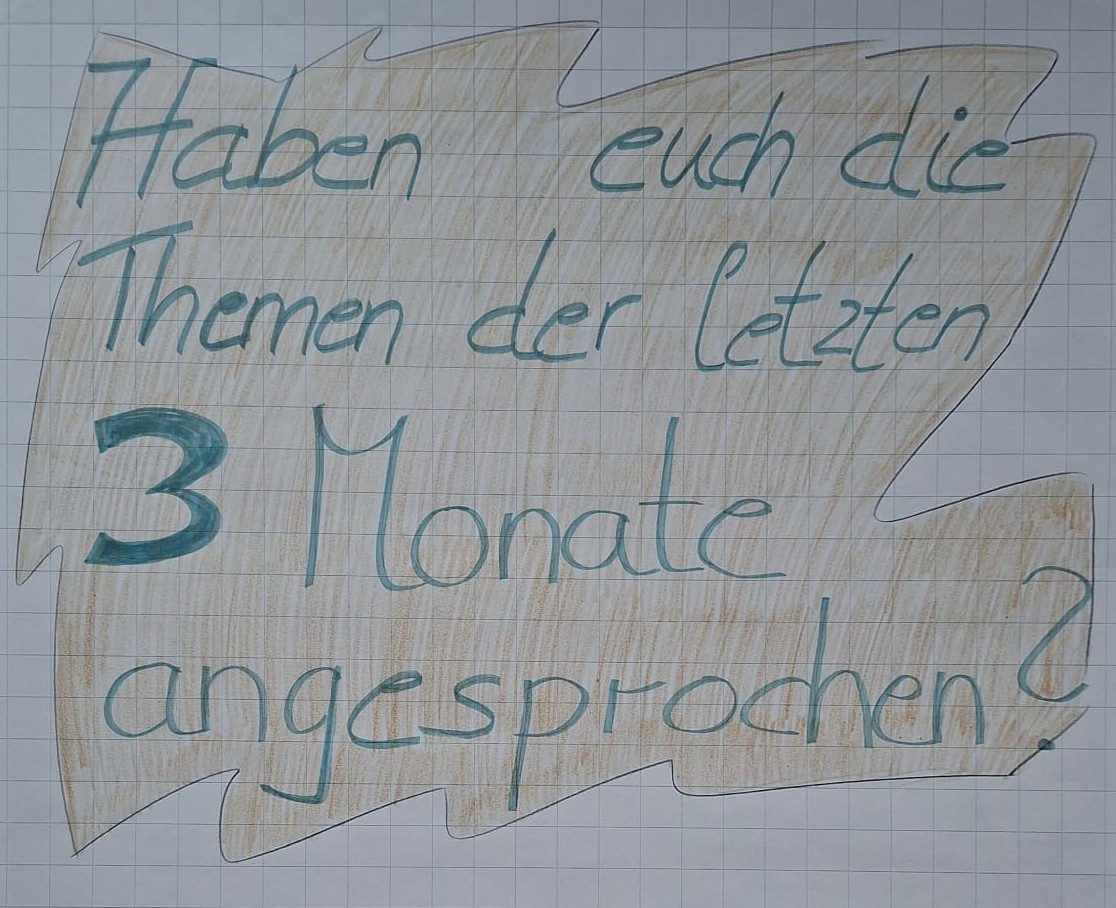 Haben euch die
Themen der letzten
3 Monate
angesprochen?